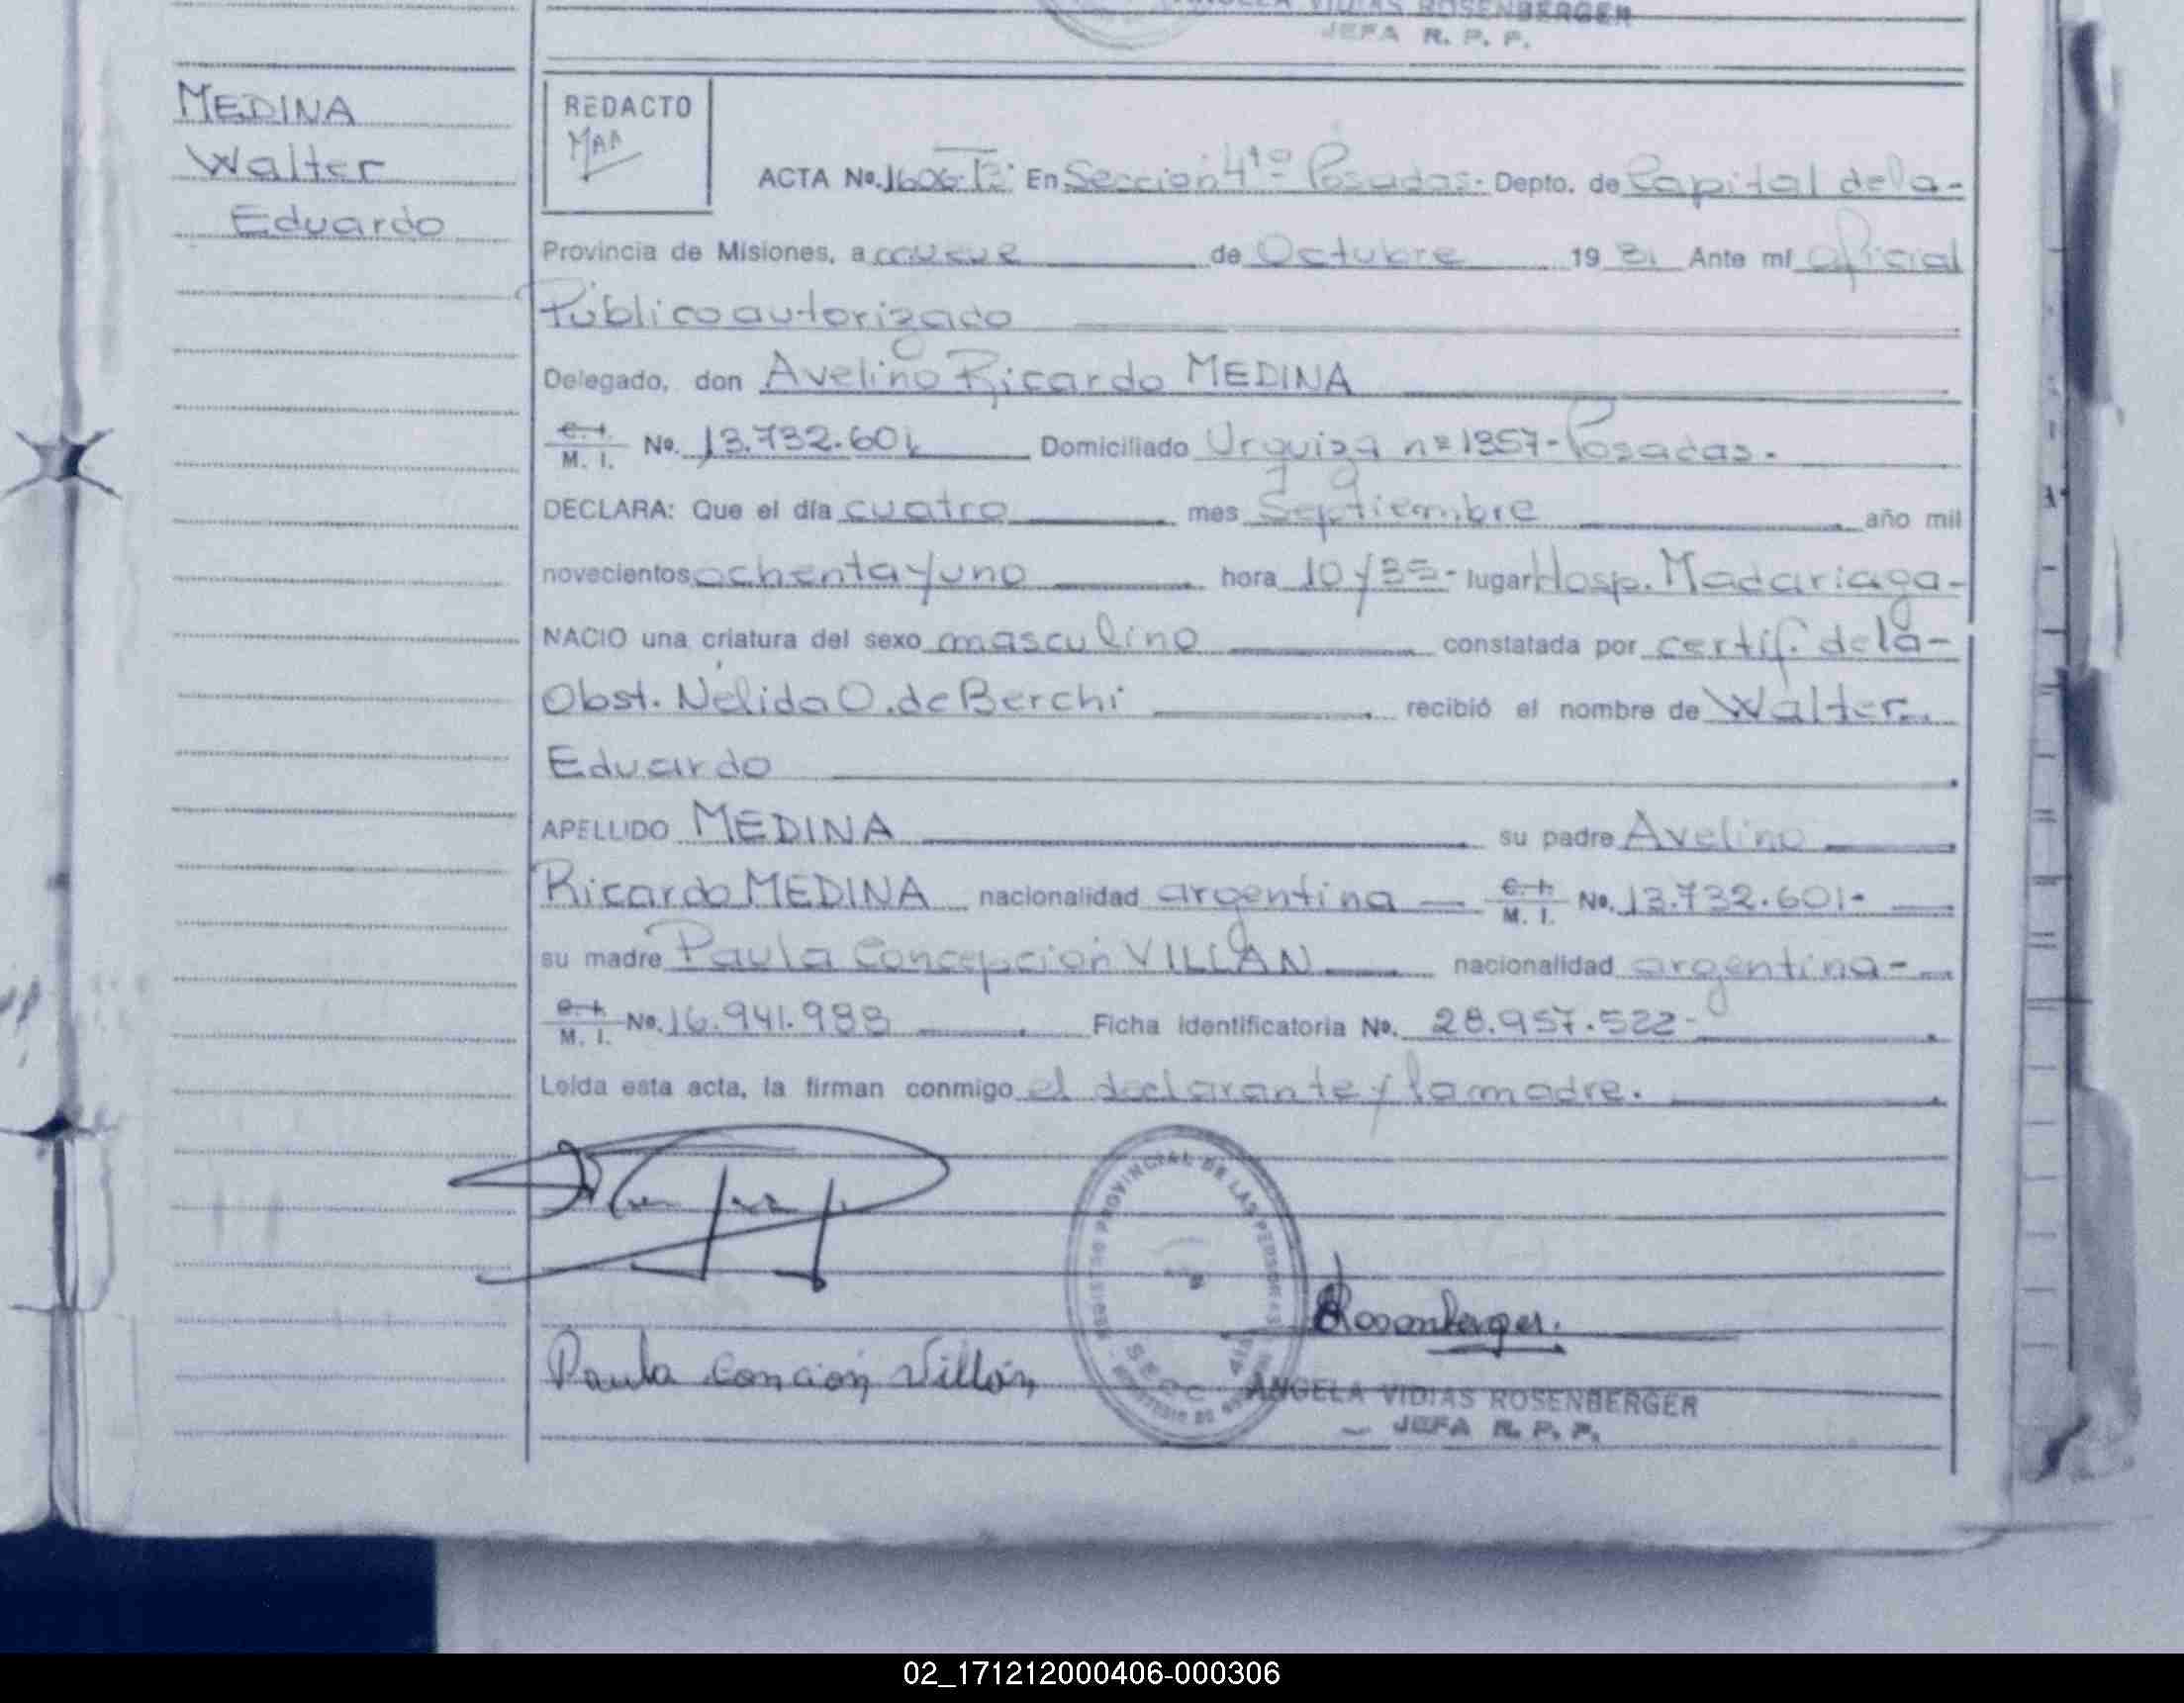 ANGELA VIDIAS ROSENBERGER
JEFA R. P. P.
MEDINA
Walter
Eduardo
REDACTO
ACTA Nº. 1606 En Sección 4ta Posadas- Depto. de Capital de la-
Provincia de Misiones, a nueve de Octubre 19 81 Ante mí oficial
Público autorizado
Delegado, don Avelino Ricardo MEDINA
C. I.
M. I. Nº. 13.732.601 Domiciliado Urquiza nº 1357-Posadas.
DECLARA: Que el día cuatro mes Septiembre año mil
novecientos ochenta y uno hora 10 y 35- lugar Hosp. Madariaga-
NACIO una criatura del sexo masculino constatada por certif. de la-
Obst. Nélida O. de Berchi recibió el nombre de Walter
Eduardo
APELLIDO MEDINA su padre Avelino
Ricardo MEDINA nacionalidad argentina C. I.
M. I. Nº. 13.732.601-
su madre Paula Concepción VILLÁN nacionalidad argentina-
C. I.
M. I. Nº. 16.941.988 Ficha identificatoria Nº. 28.957.522-
Leída esta acta, la firman conmigo el declarante y la madre.
REGISTRO PROVINCIAL DE LAS PERSONAS
SECC. 4ta
Rosenberger.
Paula Conción Villán
ANGELA VIDIAS ROSENBERGER
JEFA R. P. P.
02_171212000406-000306